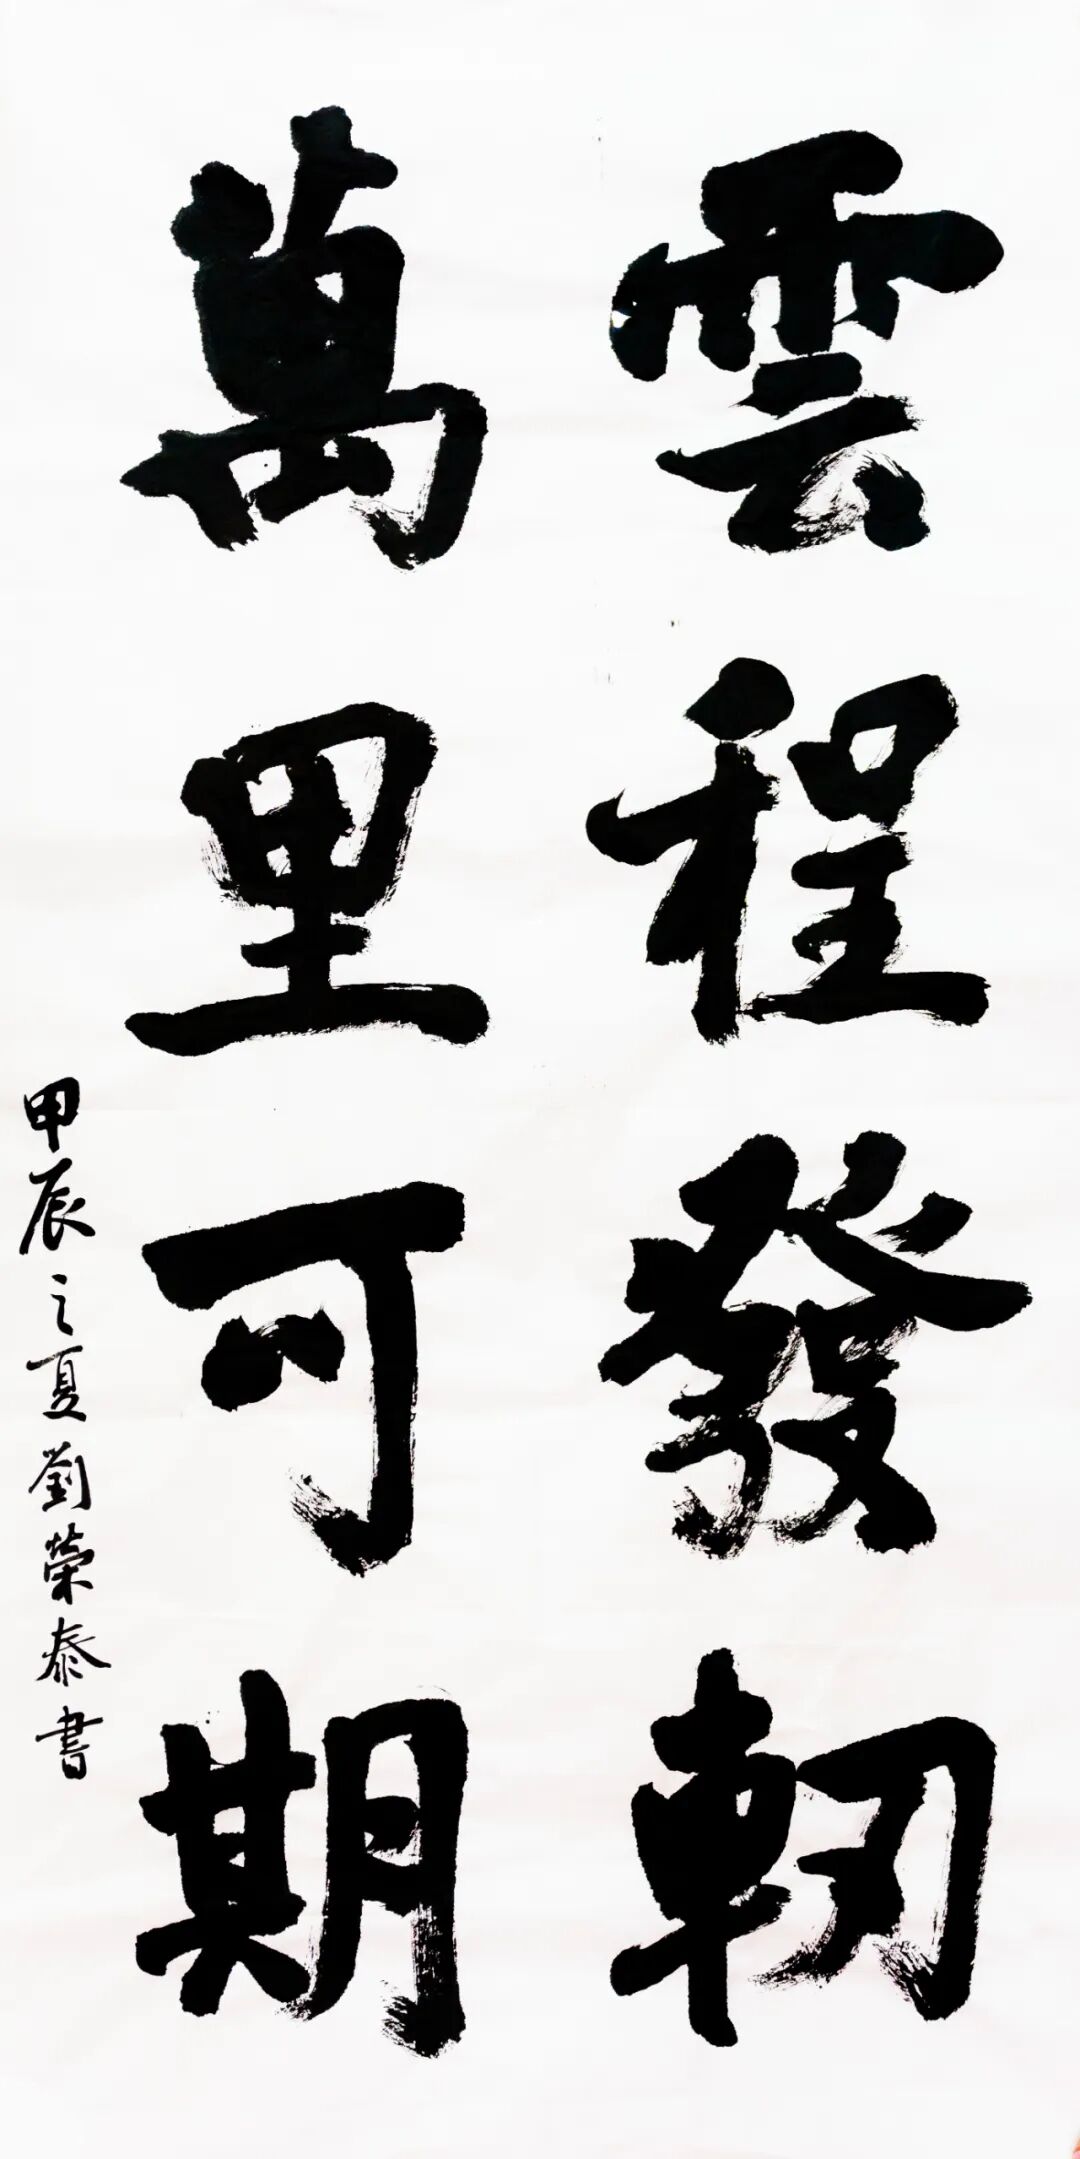 雲程發軔
萬里可期
甲辰之夏劉榮泰書